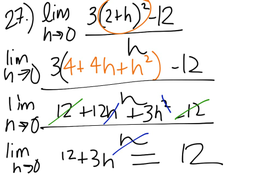 27.) lim h→0 3(2+h)²-12 / h
lim h→0 3(4+4h+h²) -12 / h
lim h→0 12+12h+3h² -12 / h
lim h→0 12+3h = 12